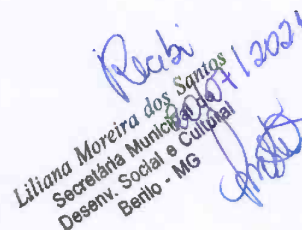 Recebi
07/2021
Liliana Moreira dos Santos
Secretária Municipal de
Desenv. Social e Cultural
Berilo - MG